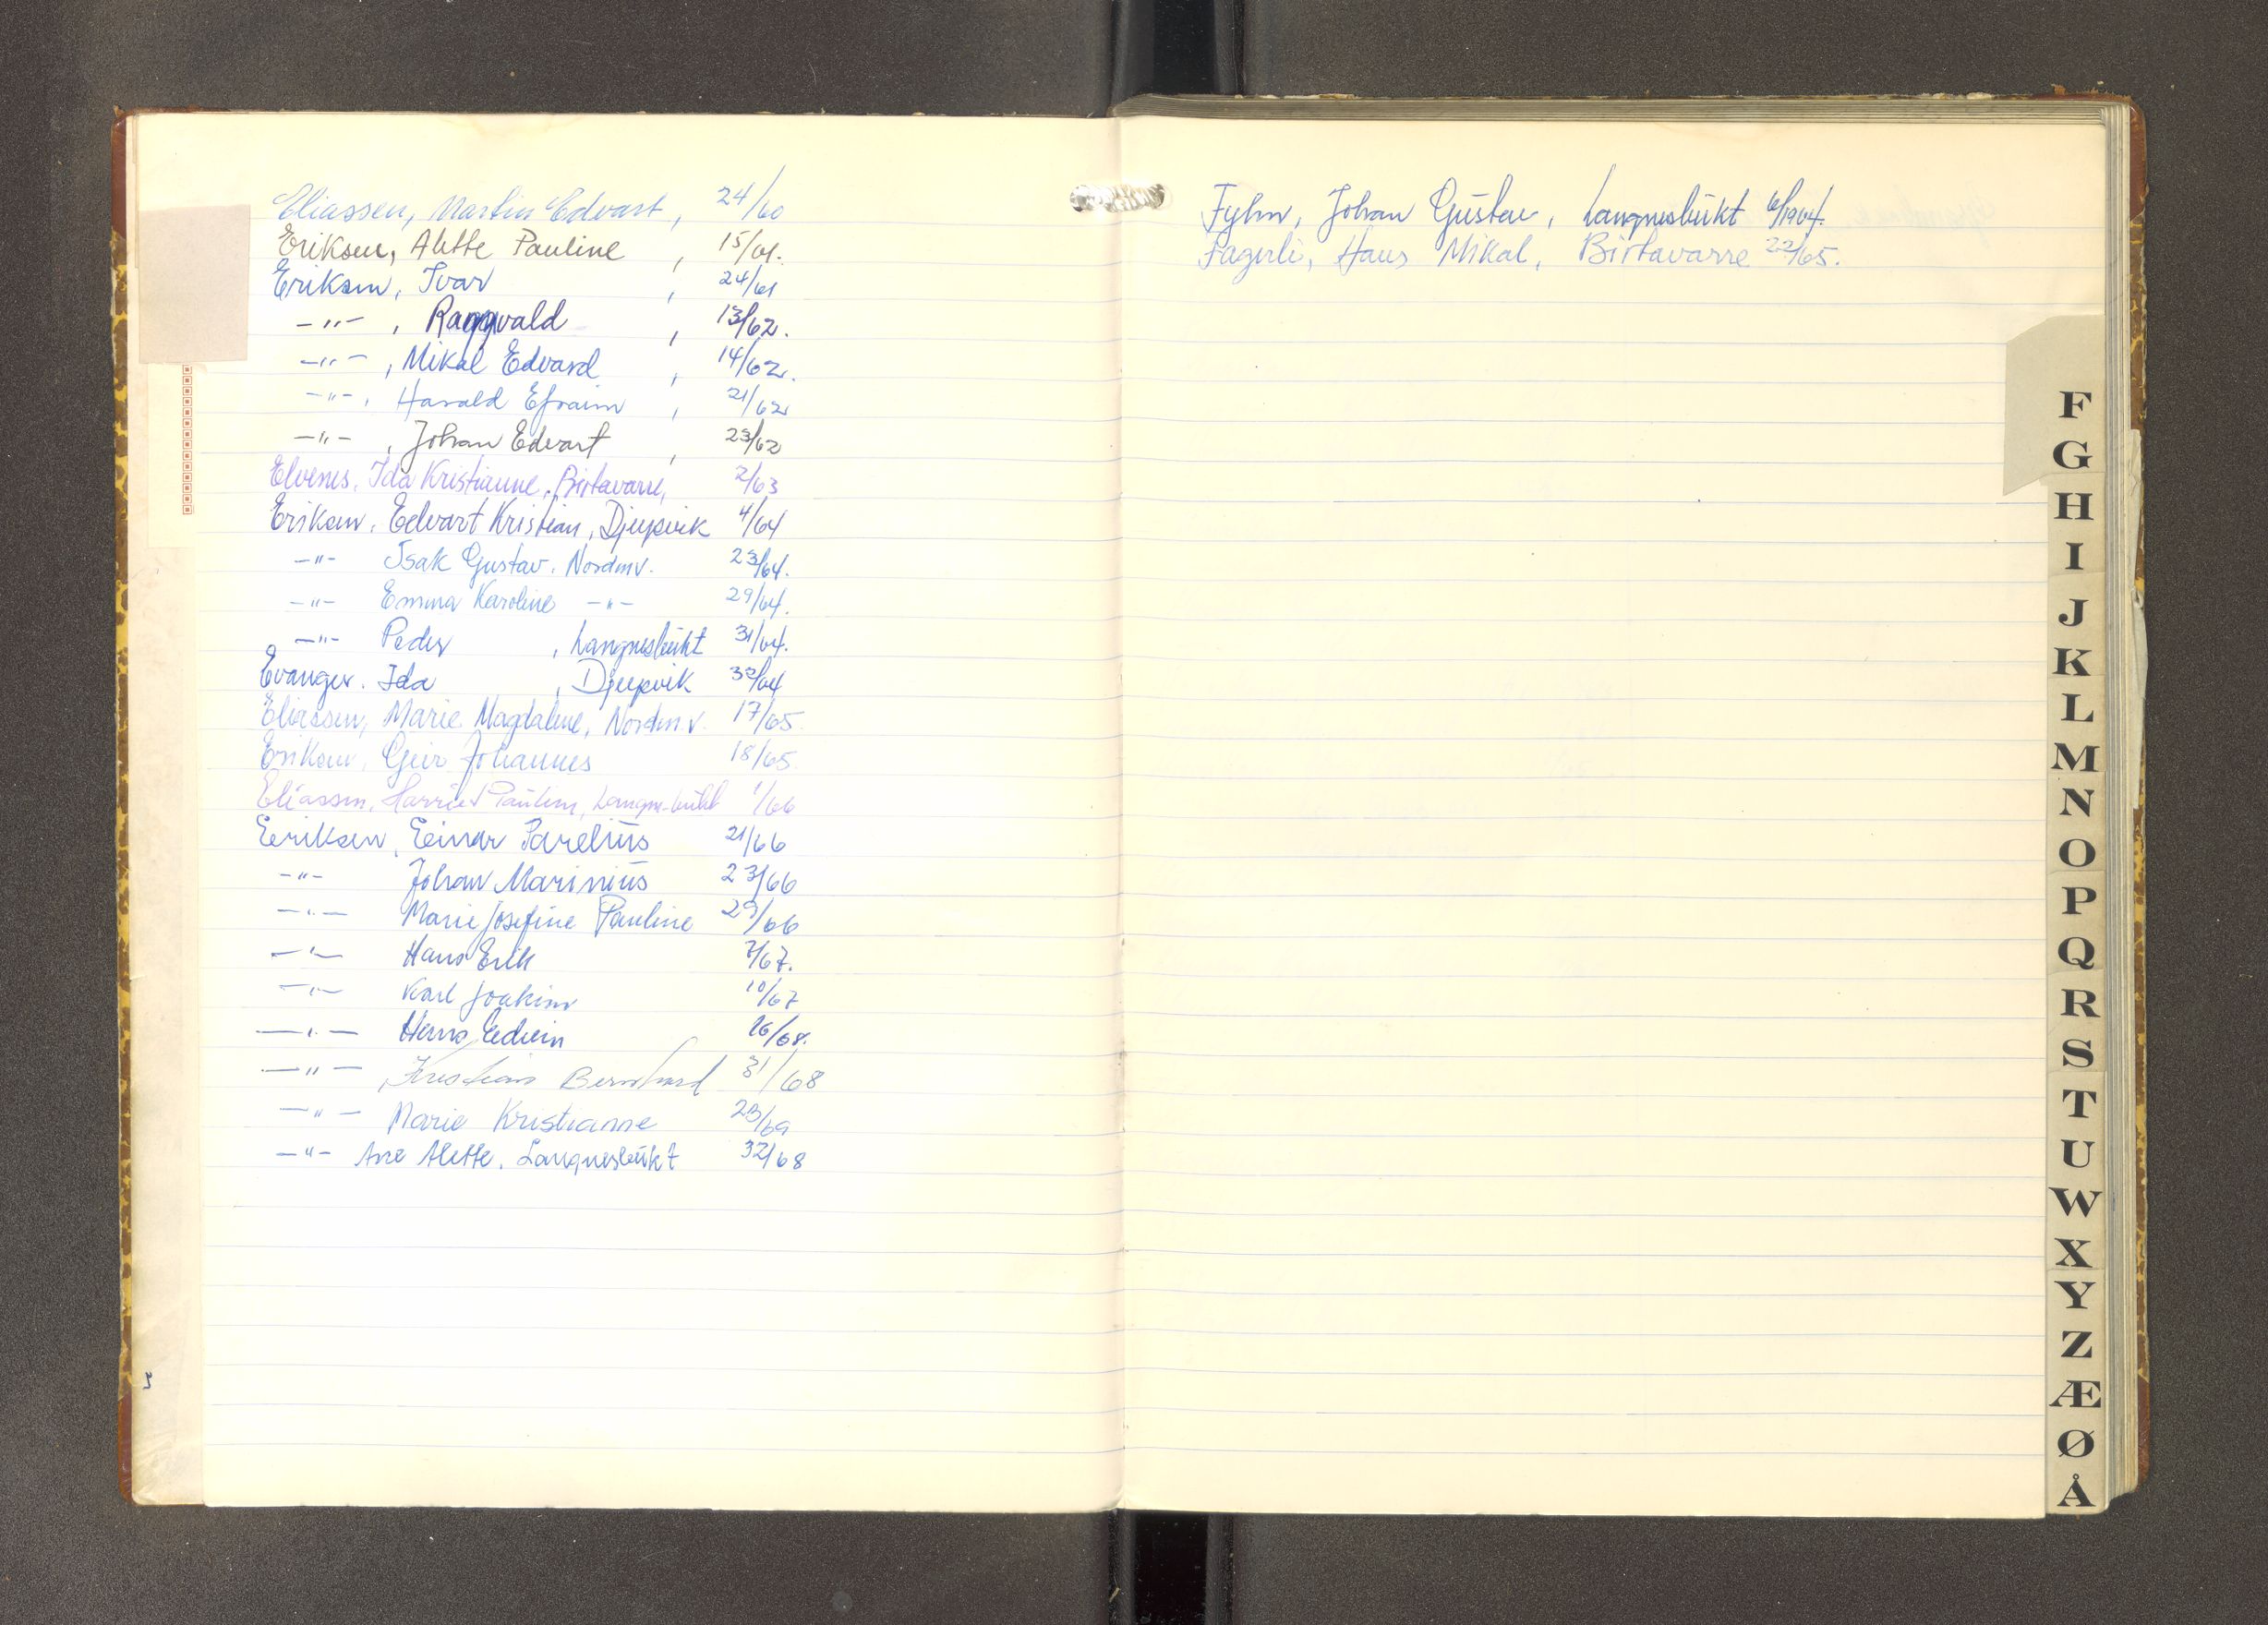 Eliassen, Martin Edvart, 24/60
Eriksen, Alette Pauline, 15/61.
Eriksen, Ivar, 24/61
-"- , Ragnvald, 13/62.
-"- , Mikal Edvard, 14/62.
-"- , Harald Efraim, 21/62
-"- , Johan Edvart, 23/62
Elvenes, Ida Kristianne, Birtavarre, 2/63
Eriksen, Edvart Kristian, Djupvik 4/64
-"- Isak Gustav, Nordmv. 23/64.
-"- Emma Karoline -"- 29/64.
-"- Peder, Langnesbukt 31/64.
Evanger. Ida, Djupvik 32/64
Eliassen, Marie Magdalene, Nordm.v. 17/65.
Eriksen, Geir Johannes 18/65.
Eliassen, Harriet Paulin, Langnesbukt 1/66
Eriksen, Einar Parelius 21/66
-"- Johan Marinius 23/66
-"- Marie Josefine Pauline 29/66
-"- Hans Erik 7/67.
-"- Karl Joakim 10/67
-"- Hans Edvin 16/68.
-"- , Kristian Bernhard 31/68
-"- Marie Kristianne 23/69
-"- Ane Alette, Langnesbukt 32/68
3
Fyhn, Johan Gustav, Langnesbukt 6/1964.
Fagerli, Hans Mikal, Birtavarre 22/65.
F
G
H
I
J
K
L
M
N
O
P
Q
R
S
T
U
W
X
Y
Z
Æ
Ø
Å